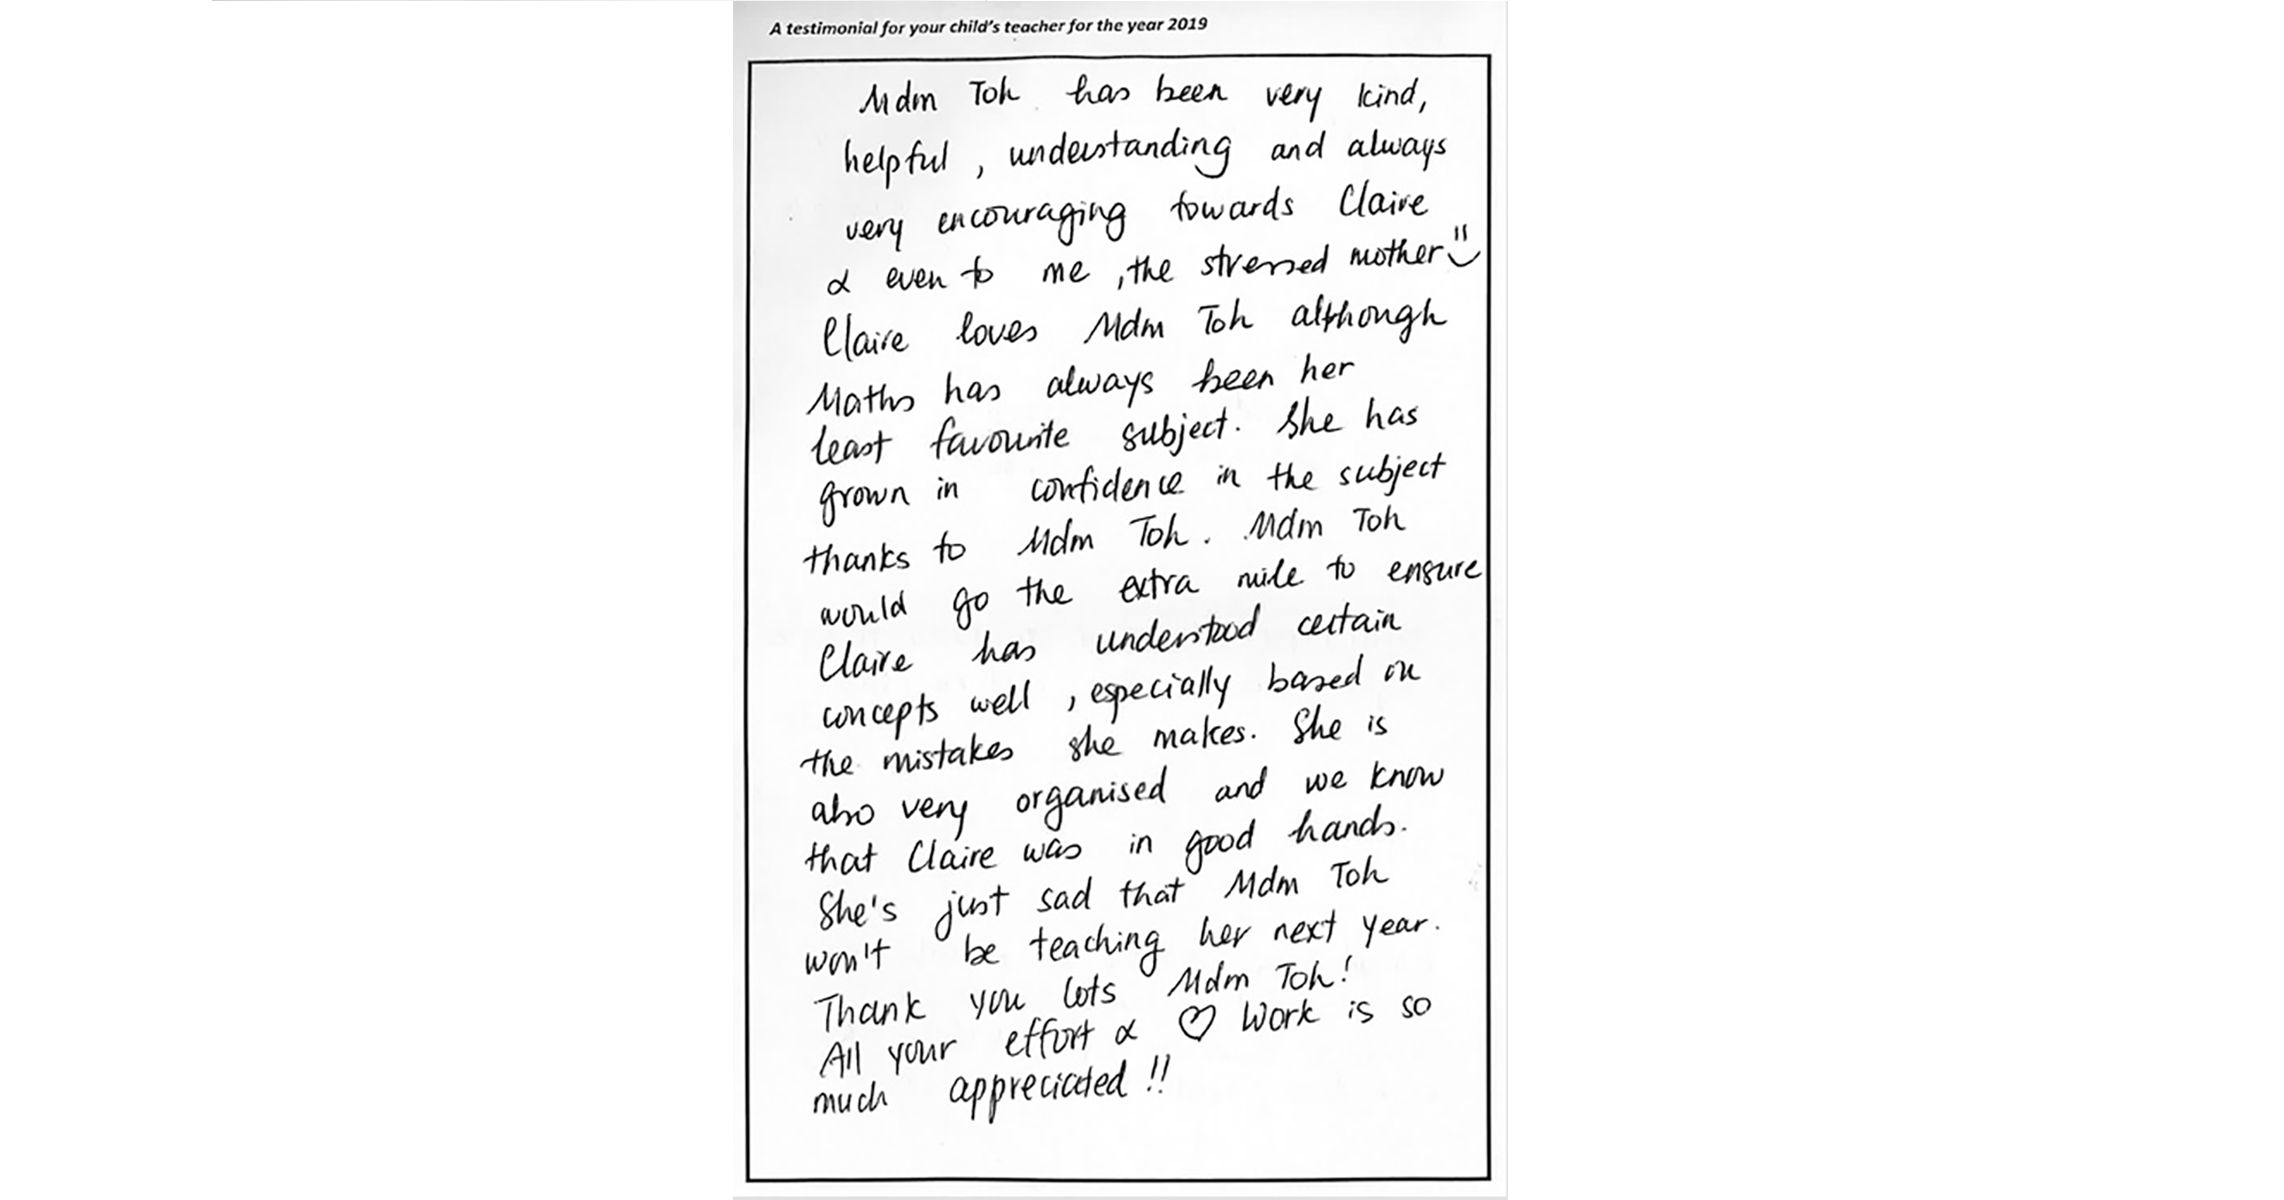 A testimonial for your child's teacher for the year 2019
Mdm Toh has been very kind,
helpful, understanding and always
very encouraging towards Claire
& even to me, the stressed mother
Claire loves Mdm Toh although
Maths has always been her
least favourite subject. She has
grown in confidence in the subject
thanks to Mdm Toh. Mdm Toh
would go the extra mile to ensure
Claire has understood certain
concepts well, especially based on
the mistakes she makes. She is
also very organised and we know
that Claire was in good hands.
She's just sad that Mdm Toh
won't be teaching her next year.
Thank you lots Mdm Toh!
All your effort & ♡ Work is so
much appreciated!!